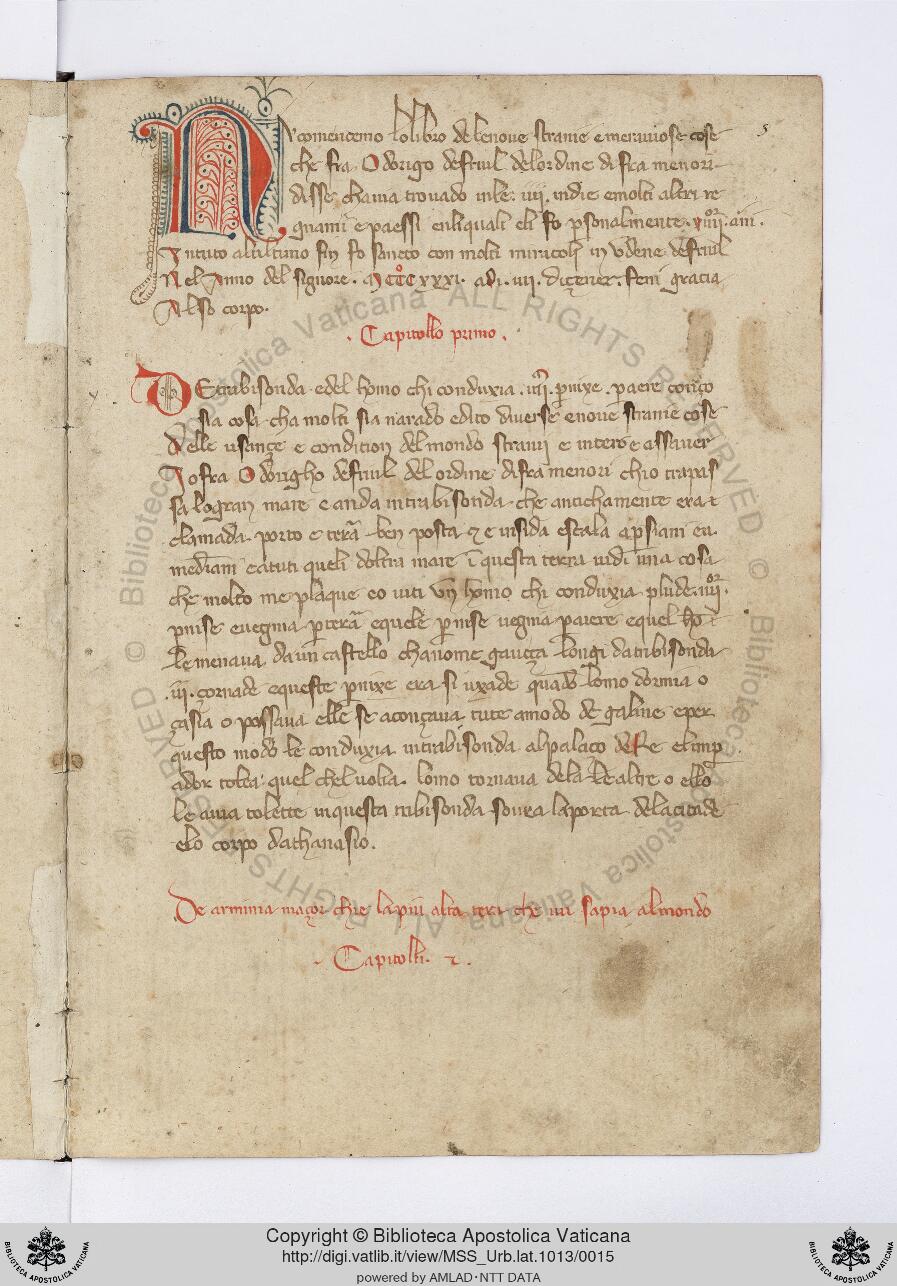 Nuy comencemo lo libro de le nove stranie e meraviose cose
che fra Odorigo de friul del ordine di fra menori
disse chavia trovado in le .iiii. indie e molti altri re
gnami e paessi en li quali eli fo psonalmente .xiiii. ani.
In tuto al ultimo sin fo sancto con molti miracoli in Udene de friul
Nel Anno del signore . MCCCXXXI. adi .iiii. diçener . Feni gracia
Al so corpo.
. Capitollo primo .
DE trabisonda e del homo chi conduxia .iiii. pnixe . p aere conço
sia cosa cha molti sia narado e dito diverse e nove stranie cose
delle usançe e condition del mondo stranii e intere e assaver
Io fra Odorigho de friul del ordine di fra menori chio trapas
sa lo gran mare e anda in trabisonda che antichamente era
clamada porto e tera ben posta e insida e scala a psiani e a
mediani e a tuti queli doltra mare i questa terra vidi una cosa
che molto me plaque eo viti un homo chi conduxia plu de .iiii.
pnise e vegnia p tera e quele pnise vegnia p aiere e quel ho
le menava da un castello cha nome gauça longi da tribisonda
.iii. çornade e queste pnixe era si uxade quando lomo dormia o
çasia o possava elle se aconçava tute a modo de galine e per
questo modo le conduxia in trabisonda al palaço de Re el imp
ador tolea quel chel volia . lomo tornava de la le altre o ello
le avia tolette in questa tribisonda sovra la porta de la citade
e lo corpo dathanasio .
De arminia maçor chie la piu alta tera che mi sapia al mondo
. Capitolli . 2 .
5
Copyright © Biblioteca Apostolica Vaticana
http://digi.vatlib.it/view/MSS_Urb.lat.1013/0015
powered by AMLAD • NTT DATA
BIBLIOTECA APOSTOLICA VATICANA
BIBLIOTECA APOSTOLICA VATICANA
© Biblioteca Apostolica Vaticana ALL RIGHTS RESERVED
© Biblioteca Apostolica Vaticana ALL RIGHTS RESERVED